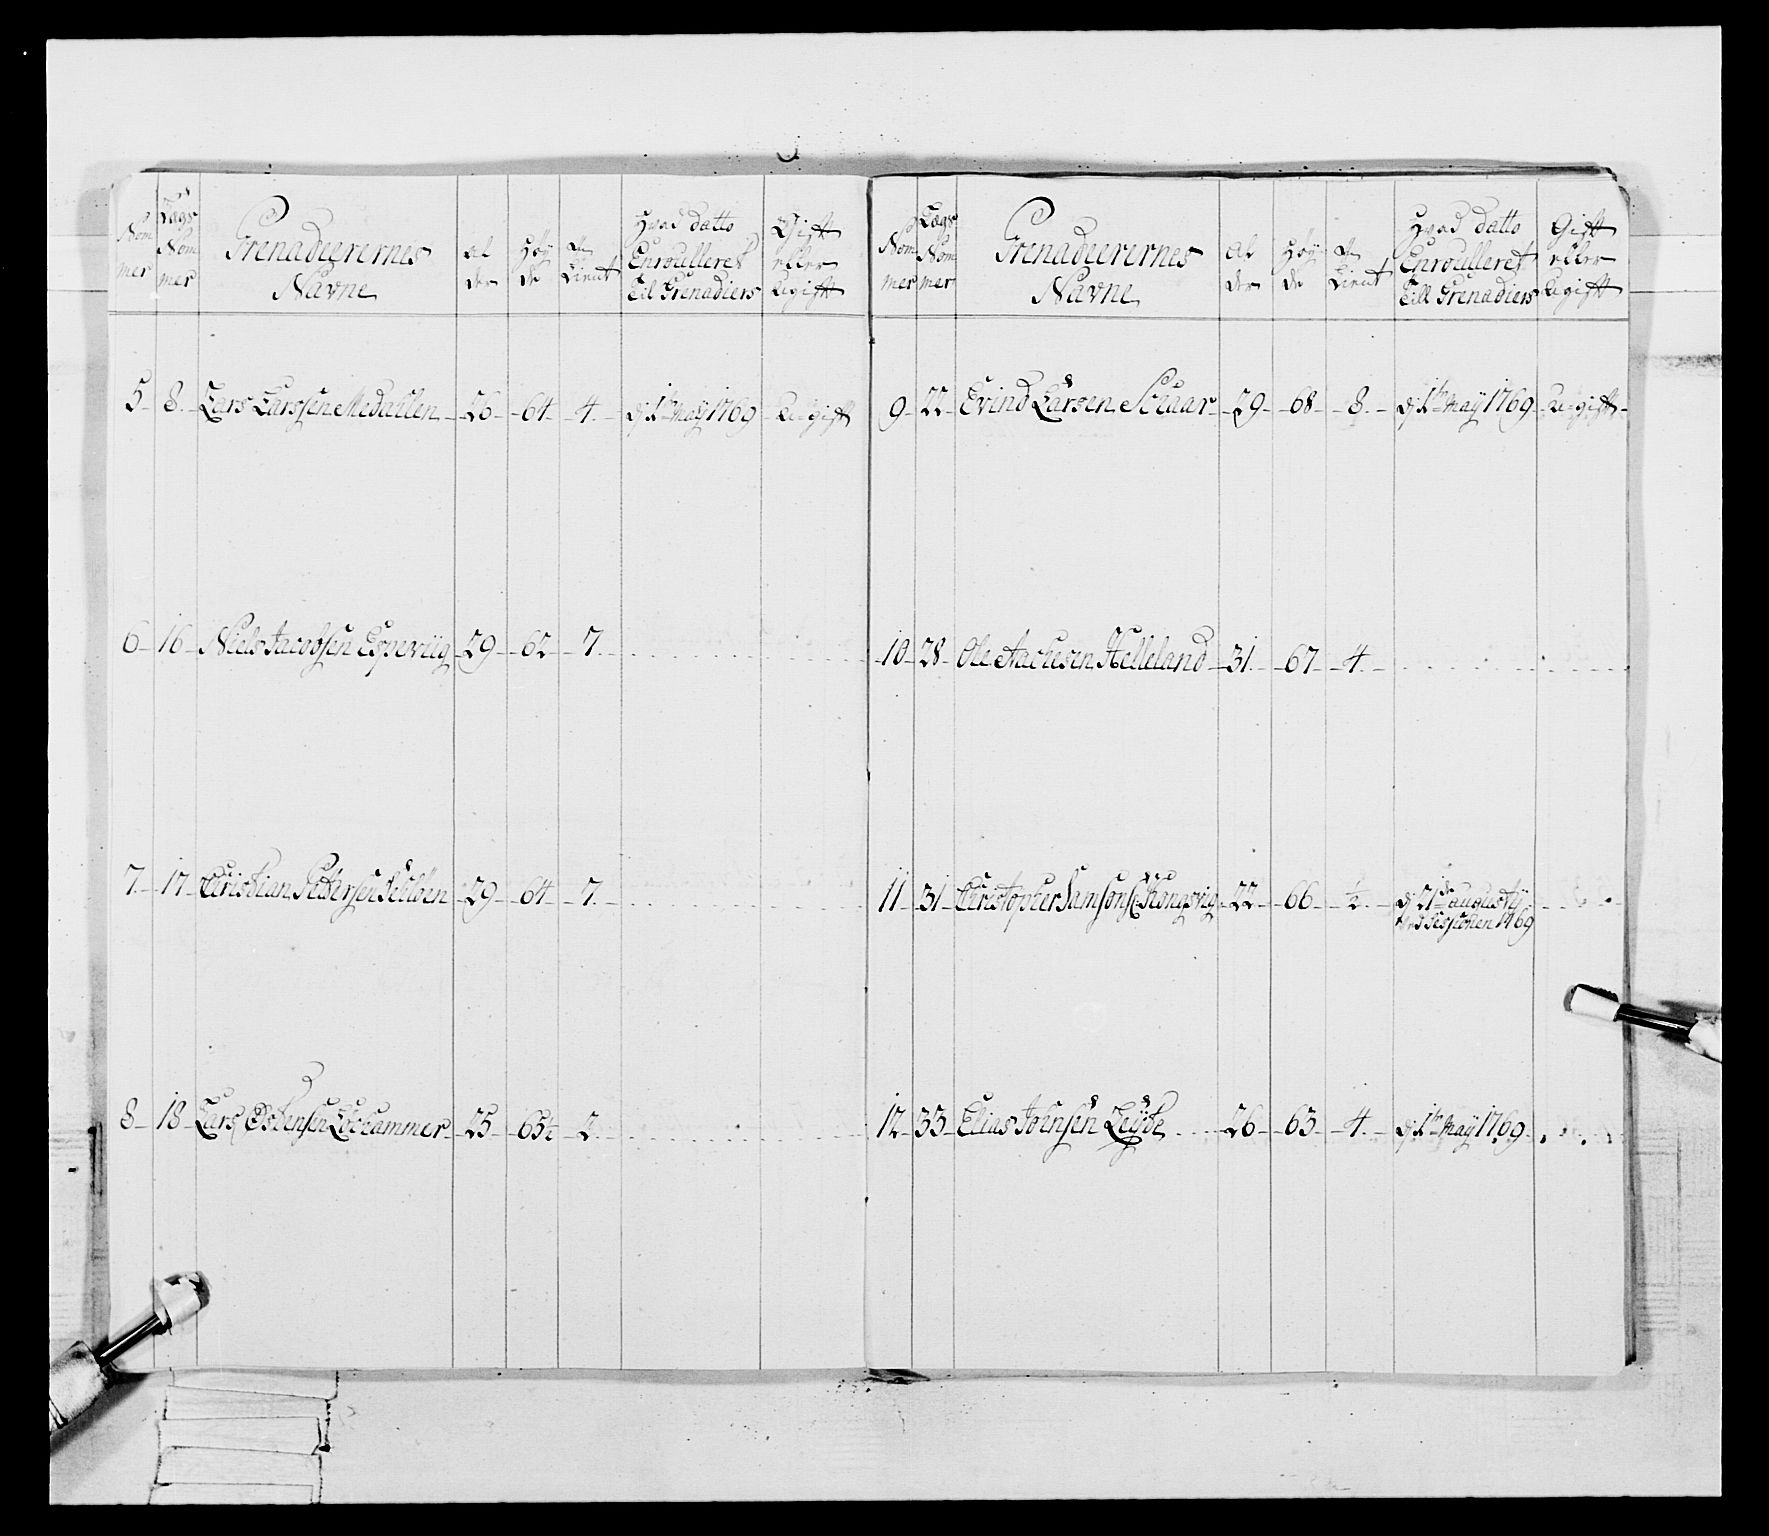 Nom mer | Lægs Nom mer | Grenadeerernes Navne | al der | Höy de | Qv Lient | Hvad datto Enroulleret Til Grenadiers | Gift eller Ugift
5 8 Lars Larssen Medallen 26 64 4 d 1te May 1769 U-gift
6 16 Niels Jacobsen Espeviig 29 62 7
7 17 Christian Pedersen 29 64 7
8 18 Lars Ostensen 25 63½ 2
Nom mer | Lægs Nom mer | Grenadeerernes Navne | al der | Höy de | Qv Lient | Hvad datto Enroulleret Till Grenadiers | Gift eller Ugift
9 22 Evind Larsen Schaar 29 68 8 d 1te May 1769 U-gift
10 28 Ole Aachesen Helleland 31 67 4
11 31 Christopher Samsons: Kongsvig 22 66 ½ d 21de augusty
ved Sessionen 1769
12 33 Elias Johnsen 26 63 4 d 1te May 1769